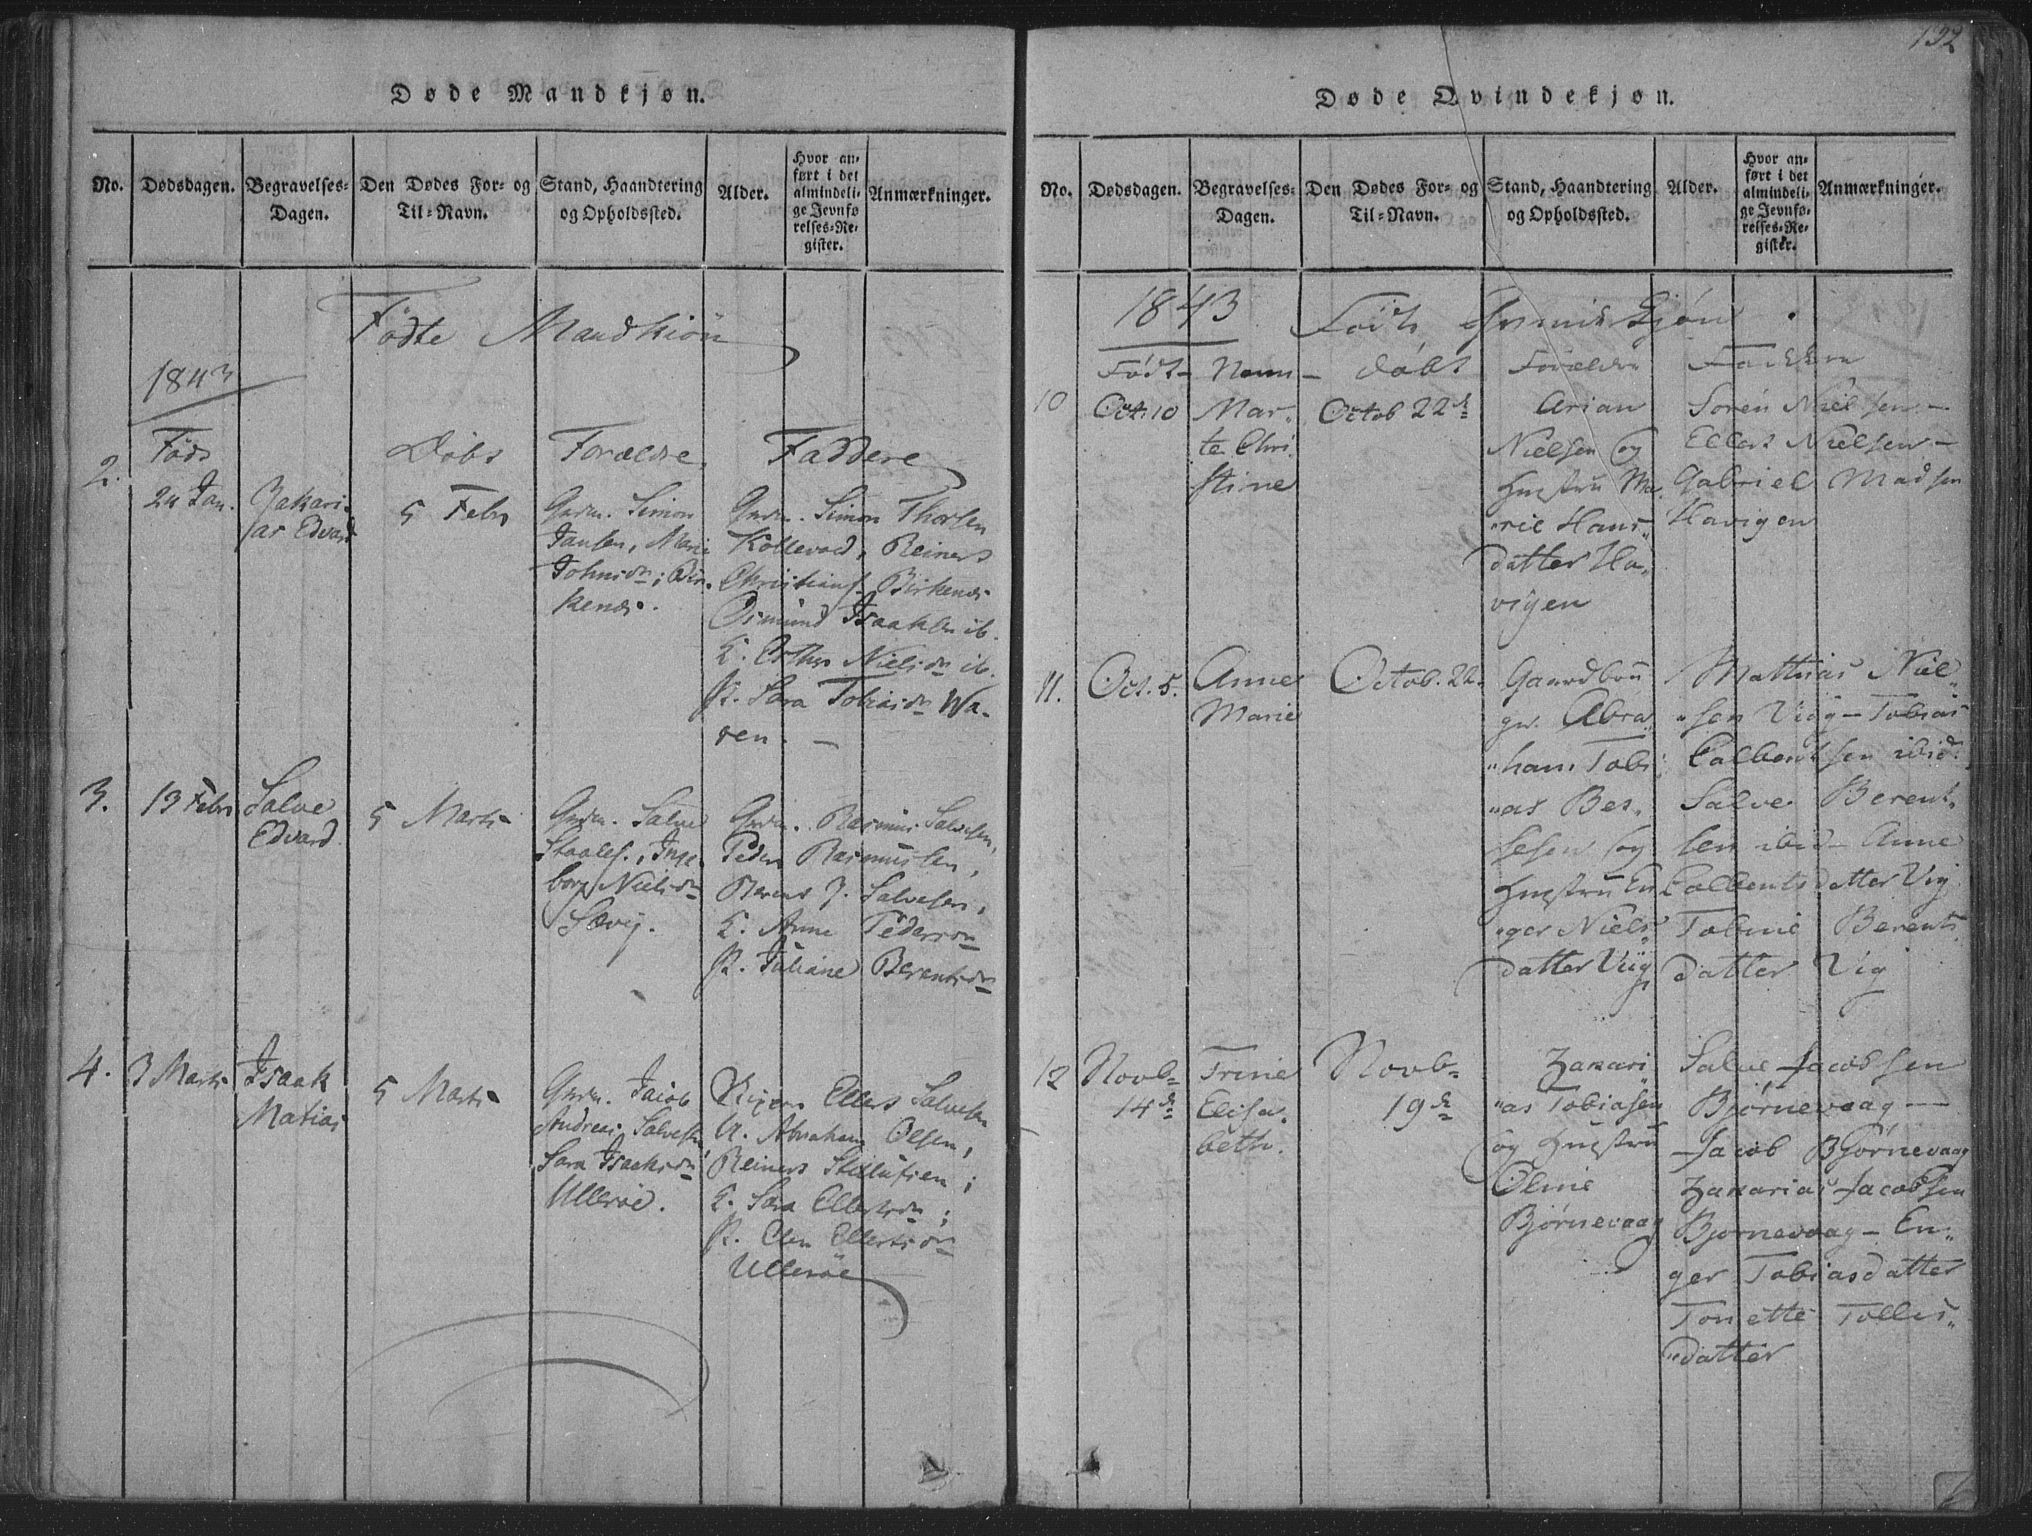 132
Døde Mandkjøn.
No.
Dødsdagen.
Begravelses-
Dagen.
Den Dødes For- og
Til-Navn.
Stand, Haandtering
og Opholdssted.
Alder.
Hvor an-
ført i det
almindeli-
ge Jevnfø
relses-Re-
gister.
Anmærkninger.
Födte Mandkiön
1843
Föds
Döbs
Forældre
Faddere
2.
24 Jan.
Zakari-
as Edvard
5 Febr
Gvdm. Simon
Jansen, Marie
Johnsdr; Bir-
kenæs.
Gvdm. Simon Thorsen
Kollevold, Reiners
Christians. Birkenæs
Osmund Isaaksen ib.
K. Esther Nielsdr ib.
P. Sara Tobiasdr Wa-
ren. —
3.
13 Febr
Salve
Edvard
5 Marts
Gvdm. Salve
Staales., Inge-
borg Nielsdr
Sævig.
Gvdm. Rasmus Salvesen,
Peder Rasmussen,
Berent J. Salvesen,
K. Anne Pedersdr
P. Juliane Berentsdr
4.
3 Marts
Isaak
Matias
5 Marts
Gvdm. Jacob
Andreas Salvesen
Sara Isaksdr
Ullerøe.
Ellert Salvesen
U. Abraham Olsen,
Reiners Stillufsen;
K. Sara Ellertsdr;
P. Elen Ellertsdr
Ullerøe
Døde Qvindekjøn.
No.
Dødsdagen.
Begravelses-
Dagen.
Den Dødes For- og
Til-Navn.
Stand, Haandtering
og Opholdssted.
Alder.
Hvor an-
ført i det
almindeli-
ge Jevnfø-
relses-Re-
gister.
Anmærkninger.
1843 Födte Qvindekjön.
Födt- Navn- döbt Forældre Faddere
10
Oct. 10
Mar-
te Chri-
stine
Octob 22de
Arian
Nielsen og
Hustru Ma-
"rie Hans"
datter Ha-
vigen
Soren Nielsen —
Ellert Nielsen —
Gabriel Madsen
Havigen
11.
Oct. 5.
Anne
Marie
Octob. 22.
Gaardbru
gr. Abra-
"ham Tobi-
"as Ber-
sesen og
Hustru En-
"ger Niels"
datter Viig
Mathias Niel-
"sen Viig — Tobias
Salve Berent-
sen ibid — Anne
datter Vig
Tobine Berents
datter Vig
12
Novb-
14de
Trine
Elisa-
beth.
Novb-
19de
Zakari-
"as Tobiasen
og Hustru
Oline
Bjørnevaag
Salve Jacobsen
Bjørnevaag —
Jacob Bjørnevaag
Zakarias Jacobsen
Bjørnevaag — En-
ger Tobiasdatter
Tonette Tollis-
"datter